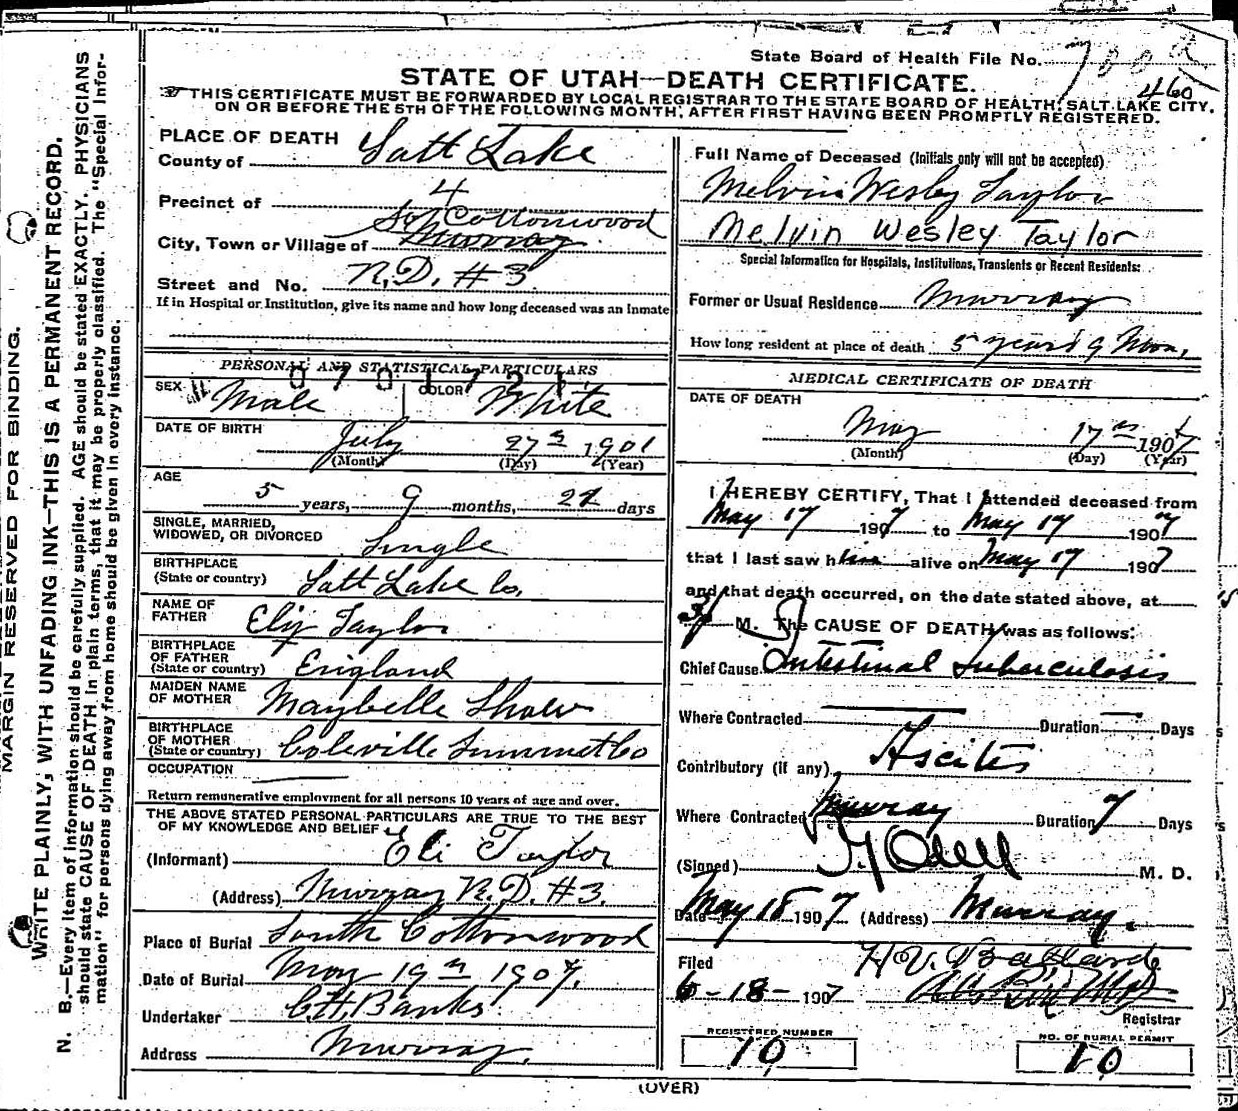 State Board of Health File No.
460
STATE OF UTAH—DEATH CERTIFICATE.
THIS CERTIFICATE MUST BE FORWARDED BY LOCAL REGISTRAR TO THE STATE BOARD OF HEALTH, SALT LAKE CITY,
ON OR BEFORE THE 5TH OF THE FOLLOWING MONTH, AFTER FIRST HAVING BEEN PROMPTLY REGISTERED.
MARGIN RESERVED FOR BINDING.
WRITE PLAINLY, WITH UNFADING INK—THIS IS A PERMANENT RECORD.
N. B.—Every item of information should be carefully supplied. AGE should be stated EXACTLY. PHYSICIANS
should state CAUSE OF DEATH in plain terms, that it may be properly classified. The "Special Infor-
mation" for persons dying away from home should be given in every instance.
PLACE OF DEATH
County of Salt Lake
Precinct of 4
So Cottonwood
City, Town or Village of Murray
Street and No. R.D. #3
If in Hospital or Institution, give its name and how long deceased was an inmate
PERSONAL AND STATISTICAL PARTICULARS
0701721
SEX Male COLOR White
DATE OF BIRTH July 27th 1901
(Month) (Day) (Year)
AGE
5 years, 9 months, 21 days
SINGLE, MARRIED,
WIDOWED, OR DIVORCED Single
BIRTHPLACE
(State or country) Salt Lake Co.
NAME OF
FATHER Eli Taylor
BIRTHPLACE
OF FATHER
(State or country) England
MAIDEN NAME
OF MOTHER Maybelle Shaw
BIRTHPLACE
OF MOTHER
(State or country) Coleville Summet Co
OCCUPATION
Return remunerative employment for all persons 10 years of age and over.
THE ABOVE STATED PERSONAL PARTICULARS ARE TRUE TO THE BEST
OF MY KNOWLEDGE AND BELIEF
(Informant) Eli Taylor
(Address) Murray R.D. #3.
Place of Burial South Cottonwood
Date of Burial May 19th 1907.
Undertaker C.H. Banks
Address Murray.
Full Name of Deceased (Initials only will not be accepted)
Melvin Wesley Taylor
Melvin Wesley Taylor
Special Information for Hospitals, Institutions, Transients or Recent Residents:
Former or Usual Residence Murray
How long resident at place of death 5 years 9 Mon,
MEDICAL CERTIFICATE OF DEATH
DATE OF DEATH
May 17th 1907
(Month) (Day) (Year)
I HEREBY CERTIFY, That I attended deceased from
May 17 1907 to May 17 1907
that I last saw him alive on May 17 1907
and that death occurred, on the date stated above, at
M. The CAUSE OF DEATH was as follows:
Chief Cause Intestinal Tuberculosis
Where Contracted Duration Days
Contributory (if any) Ascites
Where Contracted Murray Duration 7 Days
(Signed) M. D.
Date May 18 1907 (Address) Murray.
Filed H.V. Ballard
6-18-1907
Registrar
REGISTERED NUMBER
10
NO. OF BURIAL PERMIT
10
(OVER)